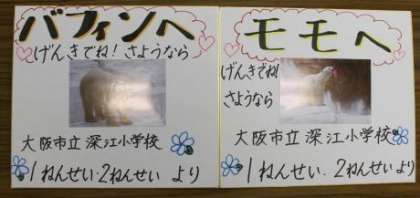 バフィンへ
げんきでね!さようなら
大阪市立深江小学校
1ねんせい・2ねんせいより
モモへ
げんきでね!
さようなら
大阪市立深江小学校
1ねんせい.2ねんせいより